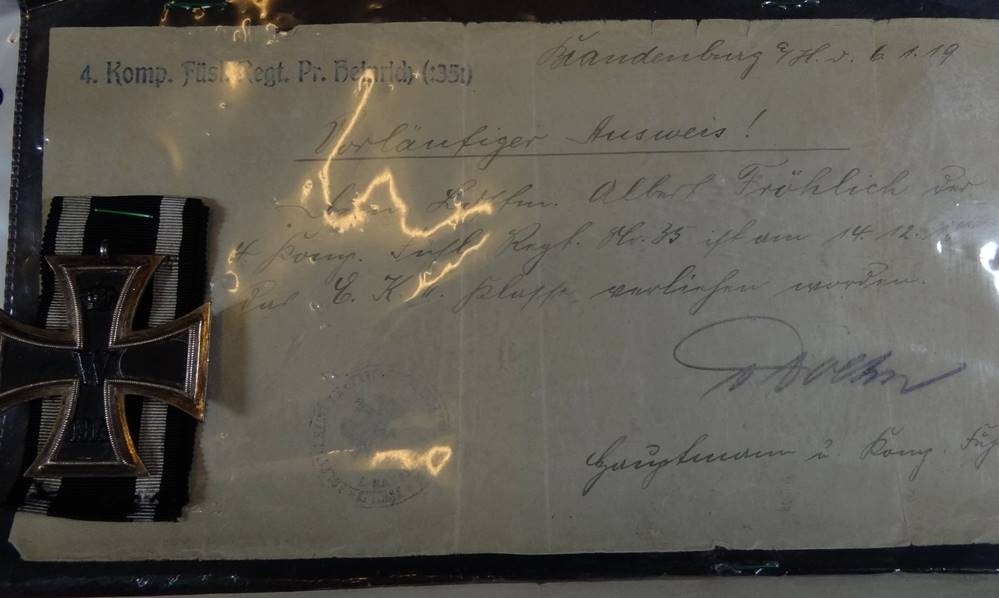 4. Komp. Füsl. Regt. Pr. Heinrich (:35:)
Brandenburg a/H. d. 6.1.19
Vorläufiger Ausweis!
Dem Albert Fröhlich der
4. Komp. Füsl. Regt. Nr. 35 ist am 14.12.
das E. K. II. Klasse verliehen worden.
Hauptmann u. Komp. Füh
W
1914